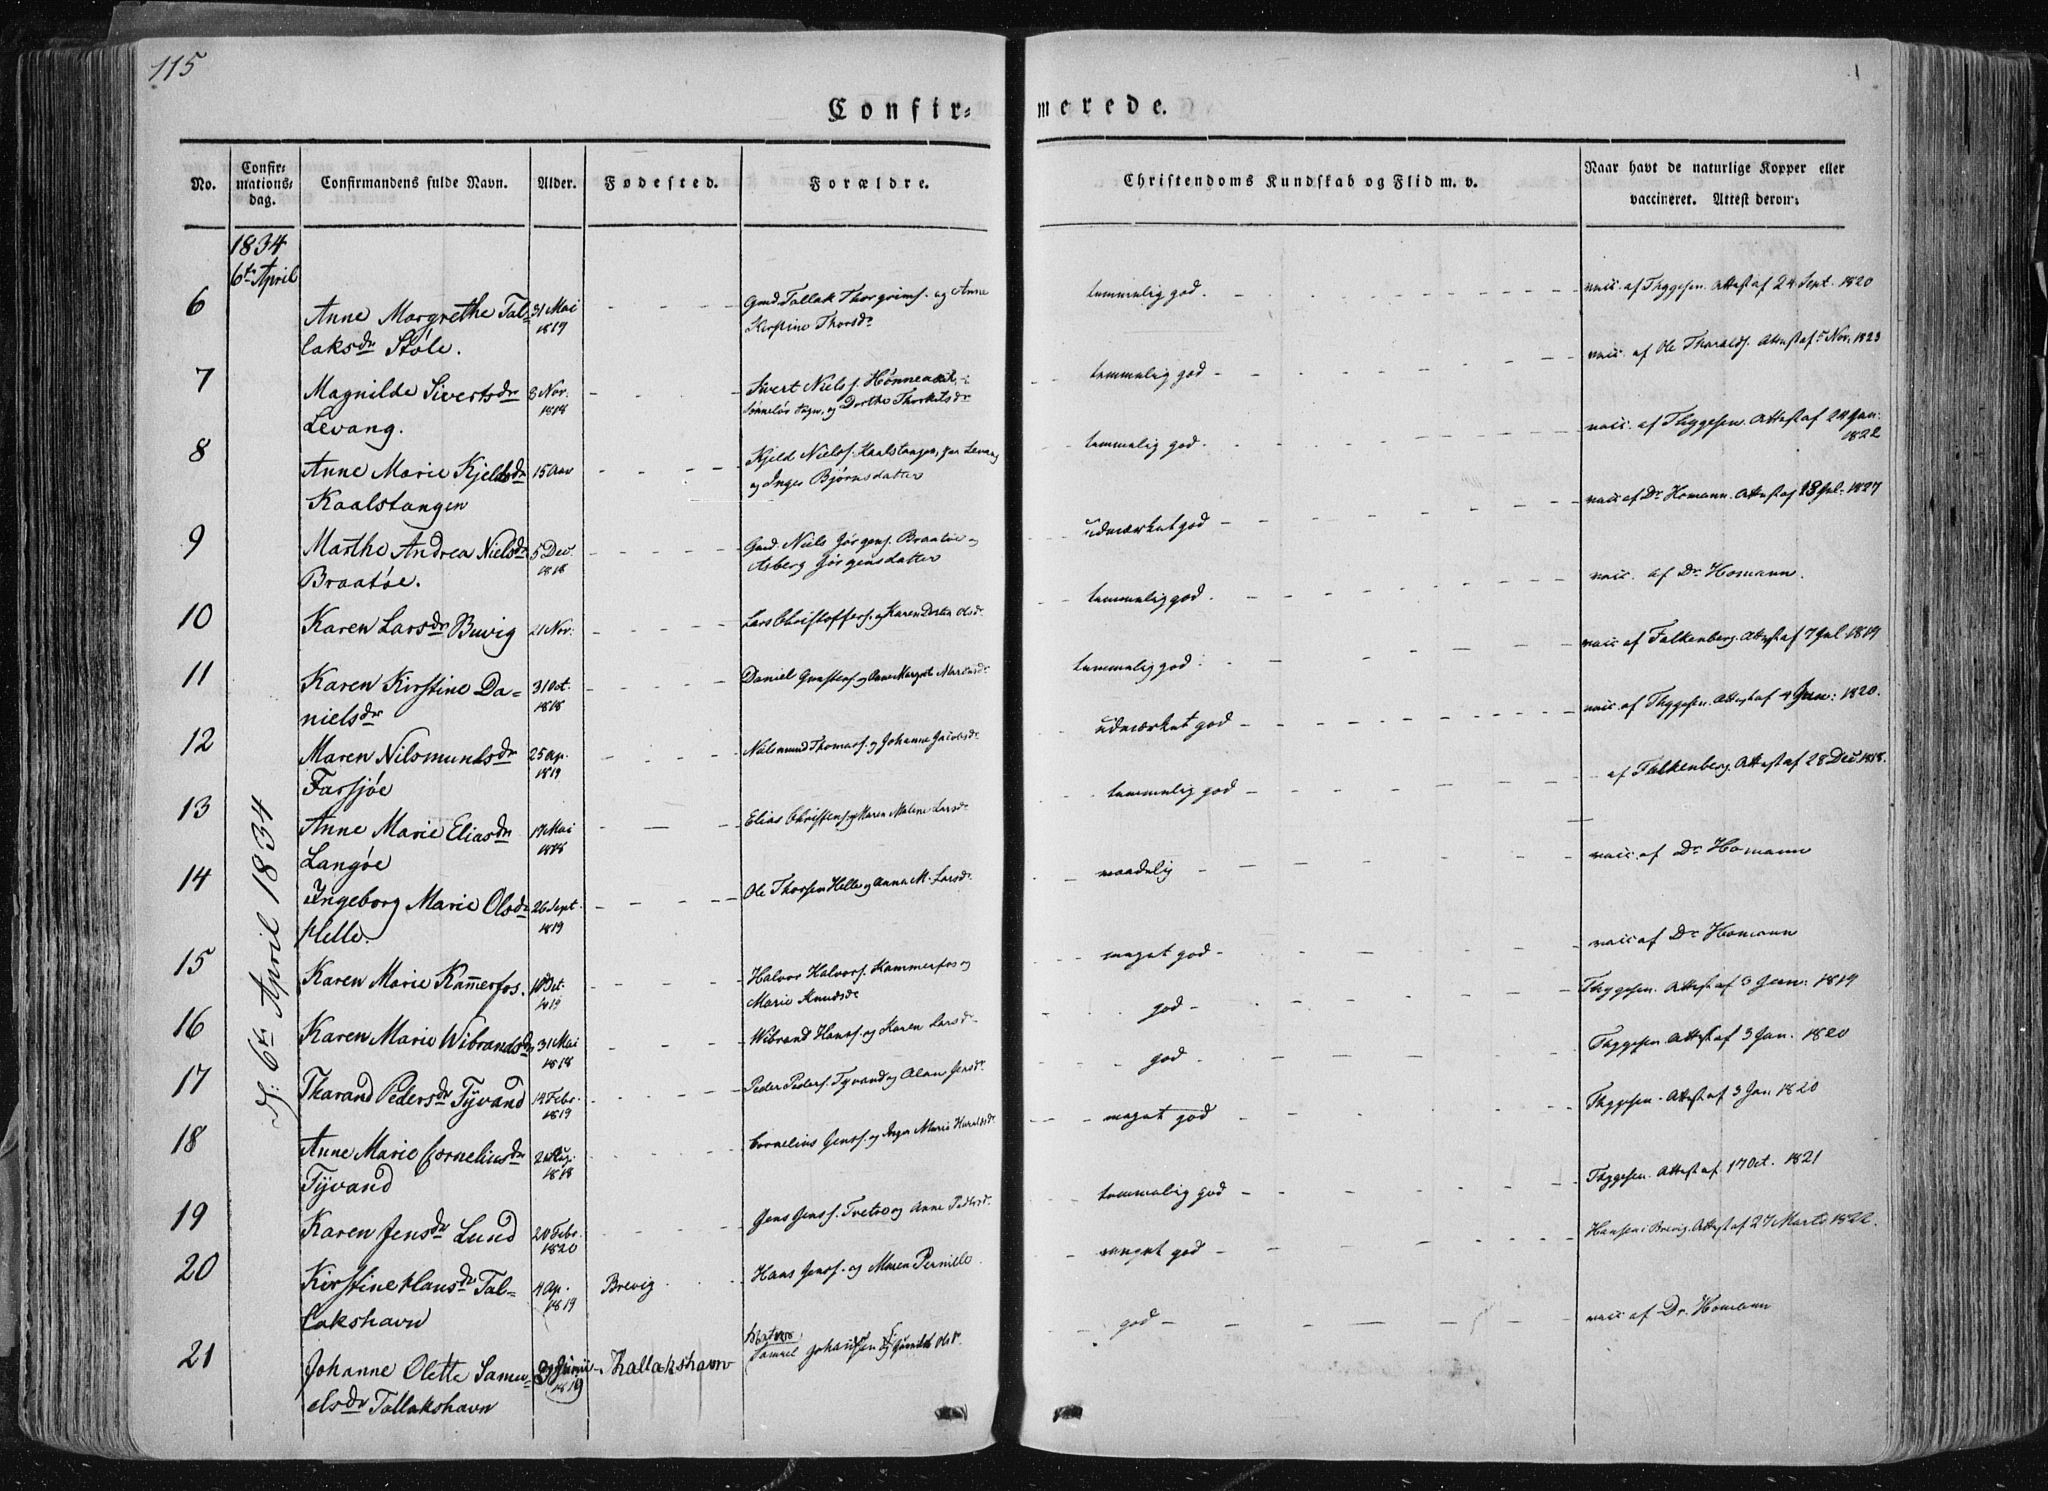 115
Confir-
merede.
No.
Confir-
mations-
dag.
Confirmandens fulde Navn.
Alder.
Fødested.
Forældre.
Christendoms Kundskab og Flid m. v.
Naar havt de naturlige Kopper eller
vaccineret. Attest derom:
1834
6te April
d. 6te April 1834
6
Anne Margrethe Tal-
laksdr Støle.
31 Mai
1819
Gmd Tallak Thorgrims. og Anne
Kirstine Thorsdr
temmelig god.
vacc. af Thygesen. Attest af 24 Sept. 1820
7
Magnilde Sivertsdr
Levang.
8 Nov.
1818
Sivert Niels f.
Sønneløs Sogn, og Dorthe Thorkilsdr
temmelig god
vacc. af Ole Tharalds. Attest af Nov. 1823
8
Anne Marie Kjeldsdr
Kaalstangen
15 Aar
Kjeld Nielss. Kaalstangen, paa Levang
og Inger Bjørnsdatter
temmelig god.
vacc. af Thygesen Attest af 24 Jan:
1822
9
Marthe Andrea Nielsdr
Braatøe.
5 Dec.
1818
Gmd. Niels Jørgens. Braatøe og
Asberg Jørgensdatter
udmærket god
vacc af Dr Homann. Attest af 18 Jul. 1827
10
Karen Larsdr Buvig
21 Nov.
Lars Christoffers. og Karen Dortea Olsdr
temmelig god
vacc. af Dr Homann.
11
Karen Kirstine Da-
nielsdr
31 Oct.
1818
Daniel og Anne Margret
temmelig god.
vacc af Falkenberg. Attest af 7 Jul 1819
12
Maren Nilsmundsdr
Farsjøe
25 Ap.
1819
Nielsmund Thomass. og Johanne Jacobsdr
udmærket god
vacc af Thygesen. Attest af 4 Jan: 1820.
13
Anne Marie Eliasdr
Langøe
17 Mai
1818
Elias Christens. og Maren Malene Larsdr
temmelig god
af Falkenberg. Attest af 28 Dec 1818.
14
Ingeborg Marie Olsdr
Helle.
26 Sept.
1819
Ole Thorsen Helle og Anna M. Larsdr
maadelig
vacc. af Dr Homann
15
Karen Marie Kamerfos.
Oct.
1819
Halvor Halvors. Kammerfos og
Marie Knudsdr
meget god
vacc af Dr Homann
16
Karen Marie Wibrandsdr
31 Mai
1818
Wibrand Hanss. og Karen Larsdr
god
Thygesen. Attest af 3 Jan: 1819
17
Tharand Pedersdr Tyvand
14 Febr.
1819
Peder Peders. Tyvand og Alau Jensdr
god
Thygesen. Attest af 3 Jan. 1820
18
Anne Marie Corneliusdr
Tyvand
Aug.
1818
Cornelius Jenss. og Inger Marie Haraldsdr
meget god
Thygesen. Attest af 3 Jan 1820
19
Karen Jensdr Lund
20 Febr.
1820
Jens Jenss. Tveten og Anne Pedersdr
temmelig god
Thygesen. Attest af. 17 Oct. 1821
20
Kirstine Hansdr Tal-
lakshavn
4 Ap.
1819
Brevig
Hans Jenss. og Maren Pernille
meget god
Hansen i Brevig. Attest af 27 Marts 1822.
21
Johanne Olette Samu-
elsdr Tallakshavn
Juni
1819
Thallakshavn
Samuel Johansen og Gunild Olsdr.
god
vacc af Dr. Homann